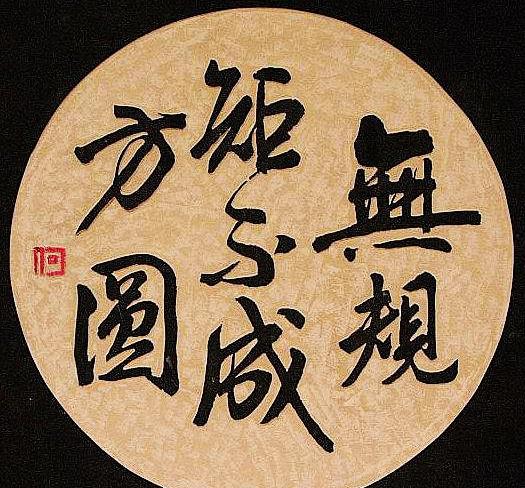 無規
矩不成
方圓